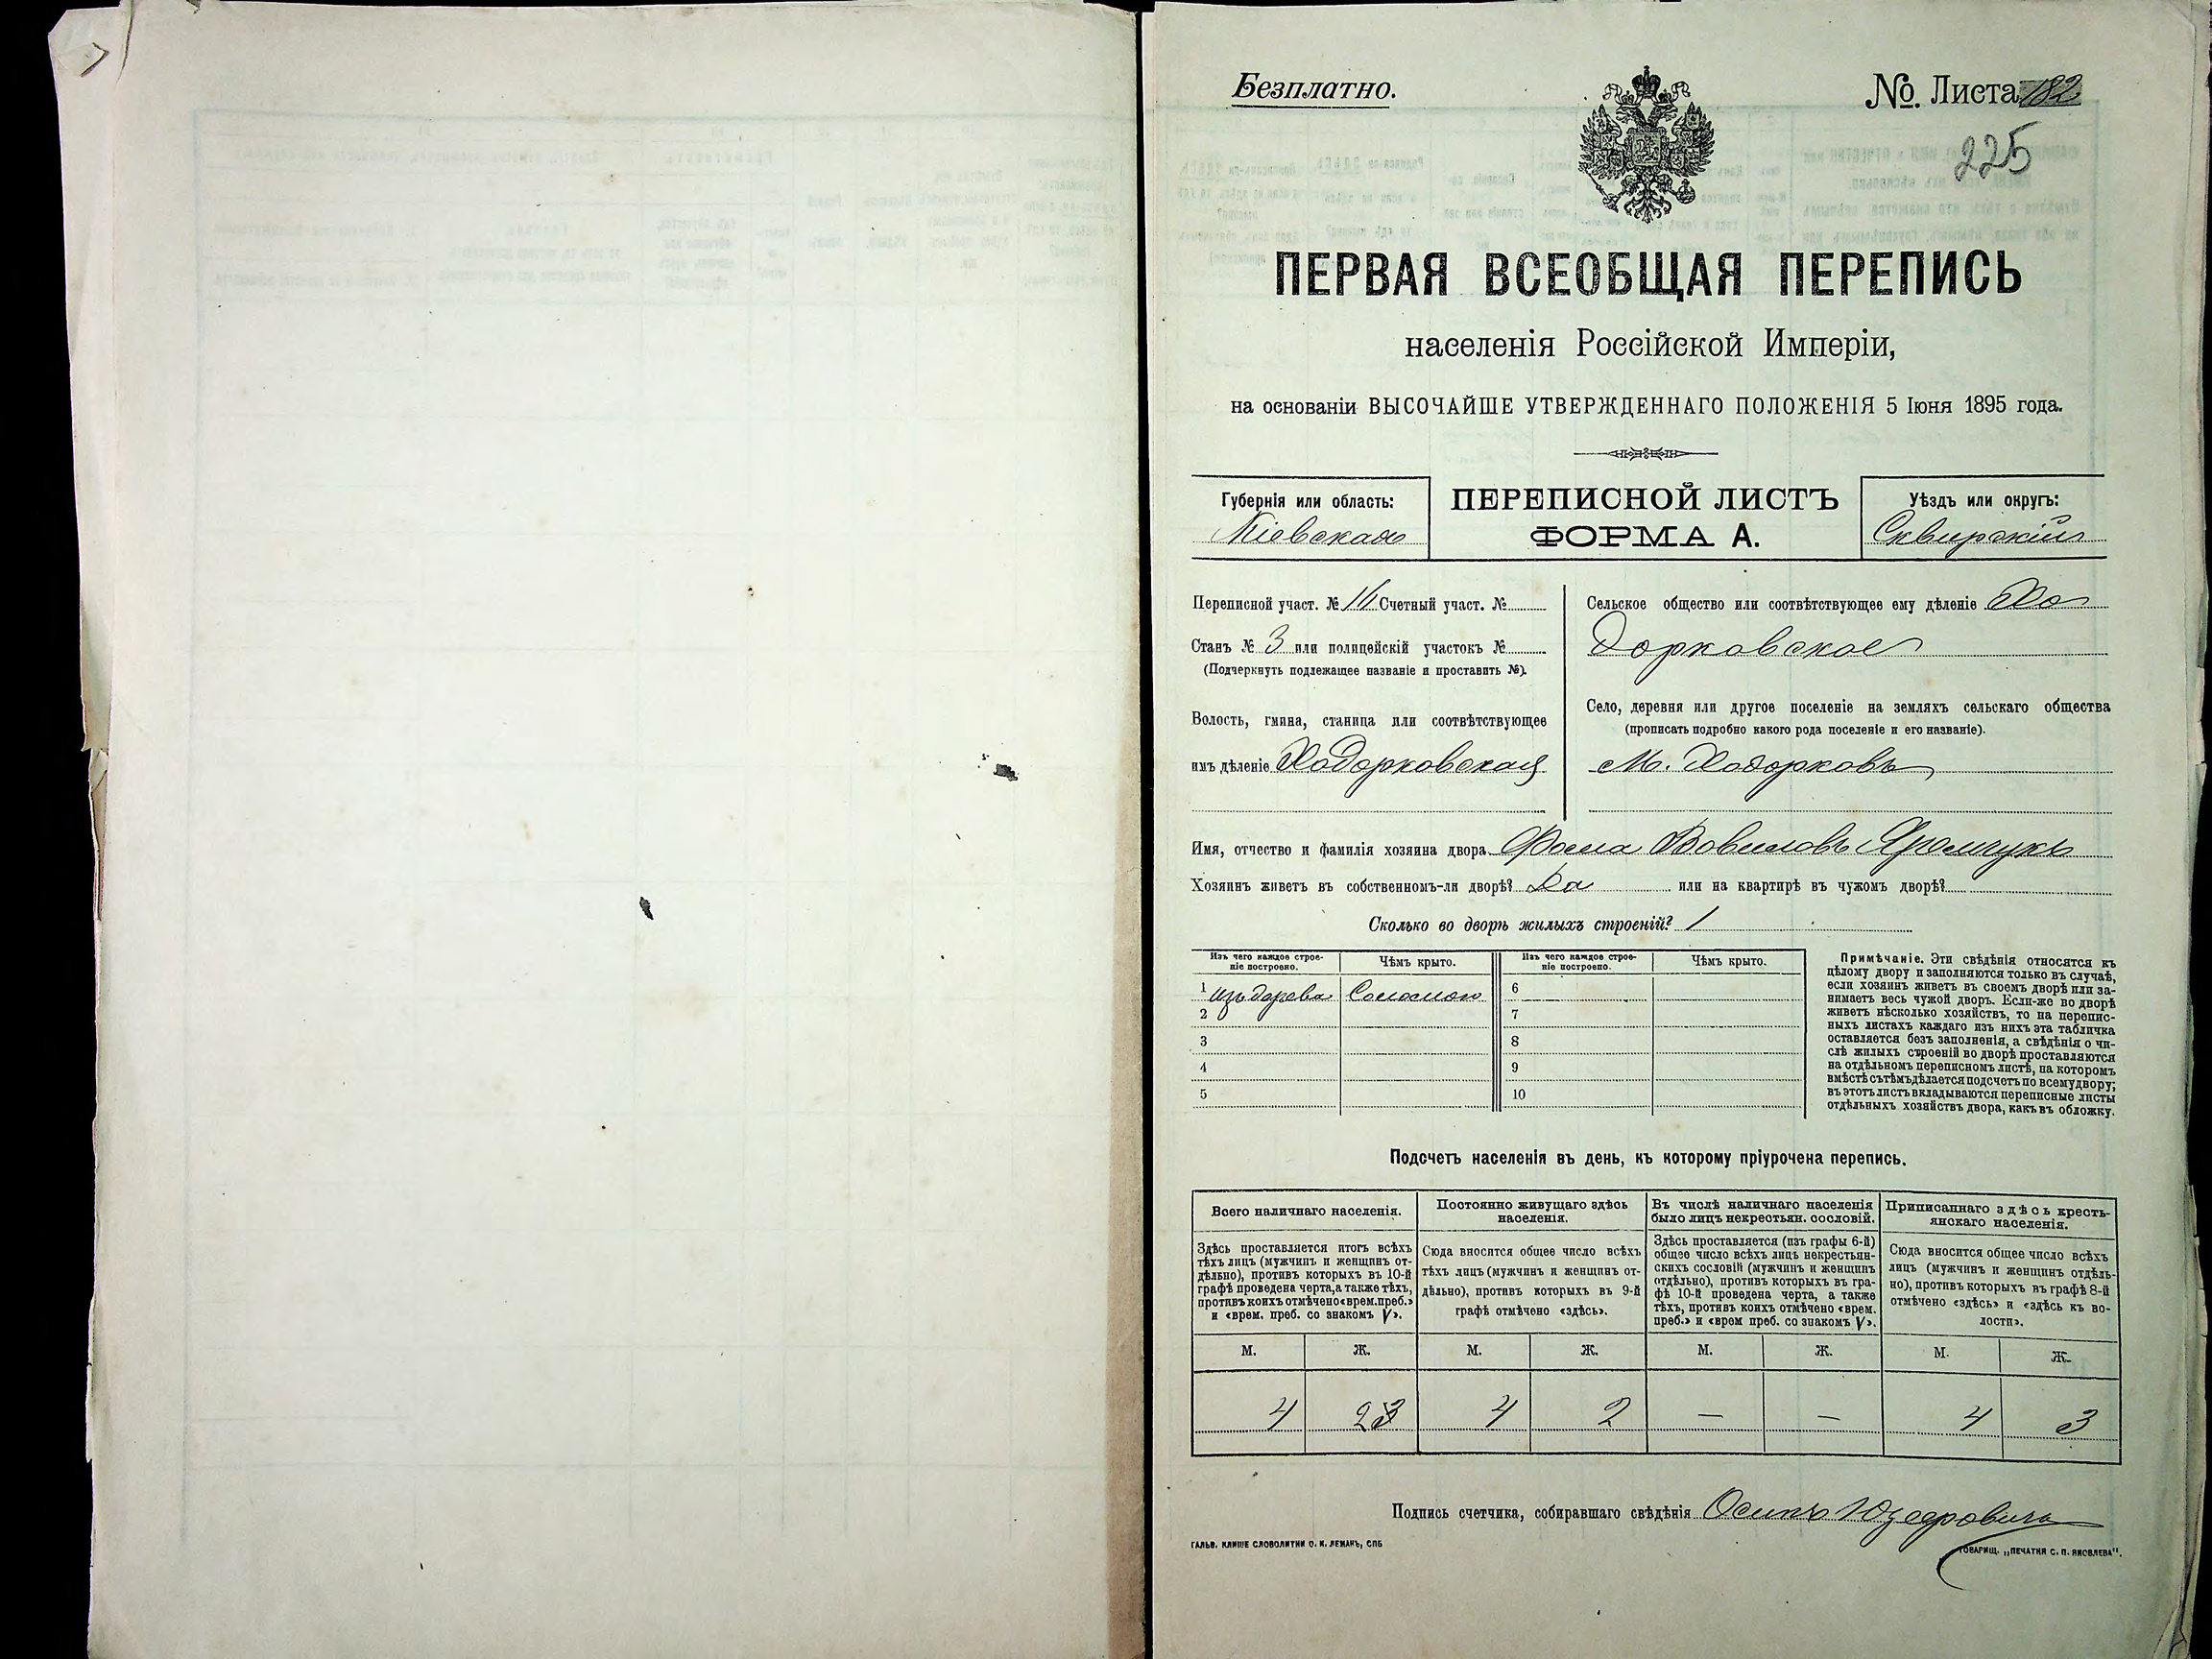 Безплатно.
№. Листа 182
225
ПЕРВАЯ ВСЕОБЩАЯ ПЕРЕПИСЬ
населенія Россійской Имперіи,
на основаніи ВЫСОЧАЙШЕ УТВЕРЖДЕННАГО ПОЛОЖЕНІЯ 5 Іюня 1895 года.
Губернія или область:
Кіевская
ПЕРЕПИСНОЙ ЛИСТЪ
ФОРМА А.
Уѣздъ или округъ:
Сквирскій
Переписной участ. № Счетный участ. №
Станъ № 3 или полицейскій участокъ №
(Подчеркнуть подлежащее названіе и проставить №).
Волость, гмина, станица или соотвѣтствующее
имъ дѣленіе Ходорковская
Сельское общество или соотвѣтствующее ему дѣленіе Хо
дорковское
Село, деревня или другое поселеніе на земляхъ сельскаго общества
(прописать подробно какого рода поселеніе и его названіе).
М. Ходорковъ
Имя, отчество и фамилія хозяина двора Фома Вовиловъ Яремчукъ
Хозяинъ живетъ въ собственномъ-ли дворѣ? Да или на квартирѣ въ чужомъ дворѣ?
Сколько во дворѣ жилыхъ строеній? 1
Изъ чего каждое строе-
ніе построено.
Чѣмъ крыто.
Изъ чего каждое строе-
ніе построено.
Чѣмъ крыто.
1 изъ дерева Соломою 6
2 7
3 8
4 9
5 10
Примѣчаніе. Эти свѣдѣнія относятся къ
цѣлому двору и заполняются только въ случаѣ,
если хозяинъ живетъ въ своемъ дворѣ или за-
нимаетъ весь чужой дворъ. Если-же во дворѣ
живетъ нѣсколько хозяйствъ, то на перепис-
ныхъ листахъ каждаго изъ нихъ эта табличка
оставляется безъ заполненія, а свѣдѣнія о чи-
слѣ жилыхъ строеній во дворѣ проставляются
на отдѣльномъ переписномъ листѣ, на которомъ
вмѣстѣ съ тѣмъ дѣлается подсчетъ по всему двору;
въ этотъ листъ вкладываются переписные листы
отдѣльныхъ хозяйствъ двора, какъ въ обложку.
Подсчетъ населенія въ день, къ которому пріурочена перепись.
Всего наличнаго населенія.
Здѣсь проставляется итогъ всѣхъ
тѣхъ лицъ (мужчинъ и женщинъ от-
дѣльно), противъ которыхъ въ 10-й
графѣ проведена черта, а также тѣхъ,
противъ коихъ отмѣчено «врем. преб.»
и «врем. преб. со знакомъ V».
Постоянно живущаго здѣсь
населенія.
Сюда вносится общее число всѣхъ
тѣхъ лицъ (мужчинъ и женщинъ от-
дѣльно), противъ которыхъ въ 9-й
графѣ отмѣчено «здѣсь».
Въ числѣ наличнаго населенія
было лицъ некрестьян. сословій.
Здѣсь проставляется (изъ графы 6-й)
общее число всѣхъ лицъ некрестьян-
скихъ сословій (мужчинъ и женщинъ
отдѣльно), противъ которыхъ въ гра-
фѣ 10-й проведена черта, а также
тѣхъ, противъ коихъ отмѣчено «врем.
преб.» и «врем преб. со знакомъ V».
Приписаннаго здѣсь кресть-
янскаго населенія.
Сюда вносится общее число всѣхъ
лицъ (мужчинъ и женщинъ отдѣль-
но), противъ которыхъ въ графѣ 8-й
отмѣчено «здѣсь» и «здѣсь къ во-
лости».
М. Ж. М. Ж. М. Ж. М. Ж.
4 2 3 4 2 — — 4 3
Подпись счетчика, собиравшаго свѣдѣнія Осипъ
ГАЛЬВ. КЛИШЕ СЛОВОЛИТНИ О. И. ЛЕМАНЪ, СПБ
ТОВАРИЩ. „ПЕЧАТНЯ С. П. ЯКОВЛЕВА".